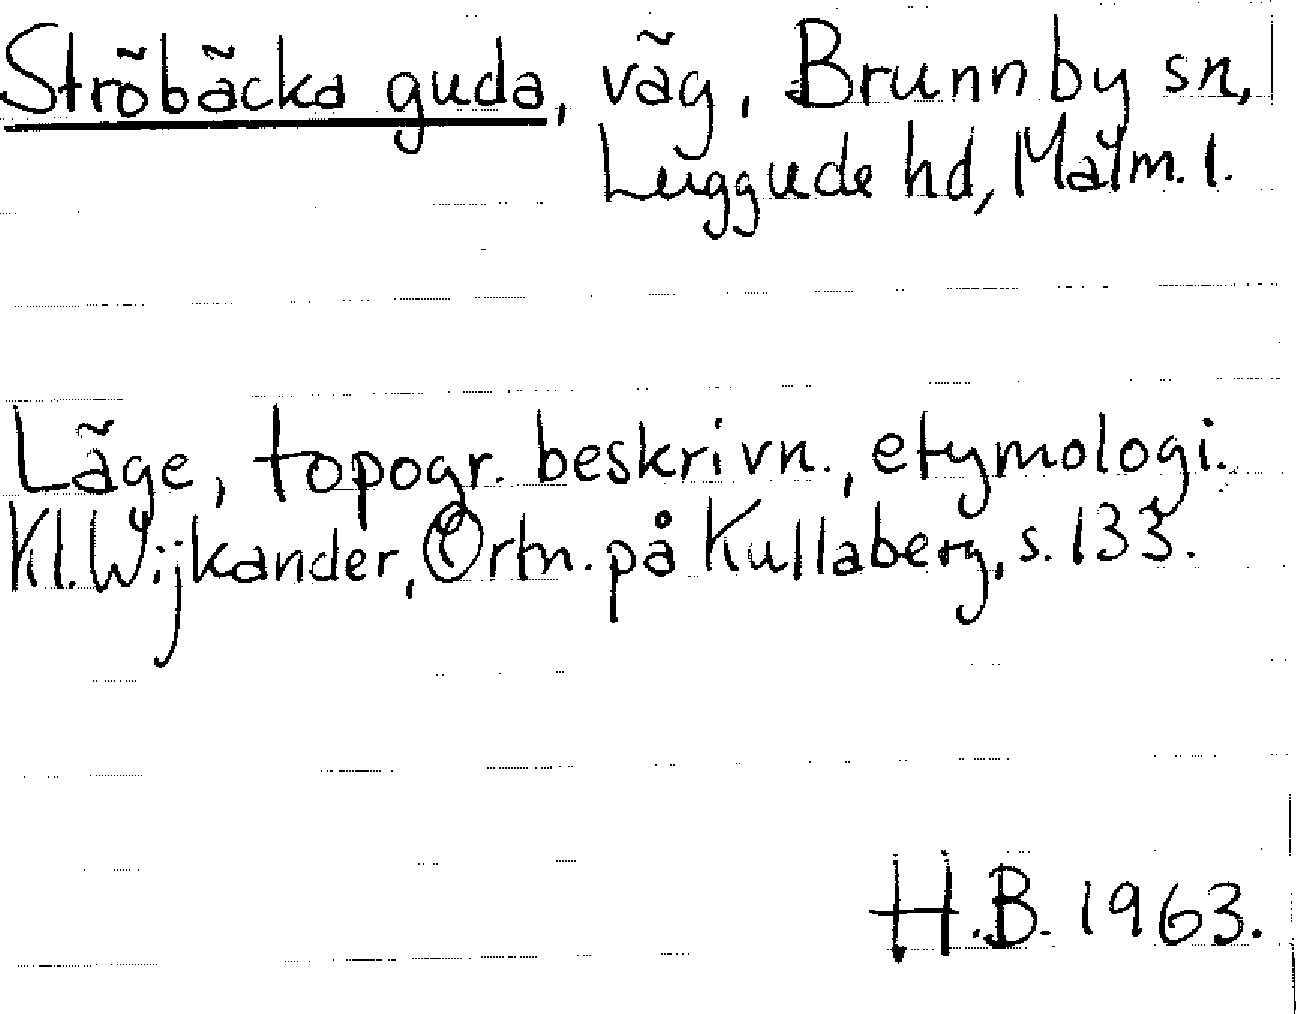 Ströbäcka guda, väg, Brunnby sn,
Luggude hd, Malm. l.
Läge, topogr. beskrivn., etymologi.
Kl. Wijkander, Ortn. på Kullaberg, s. 133.
H.B. 1963.